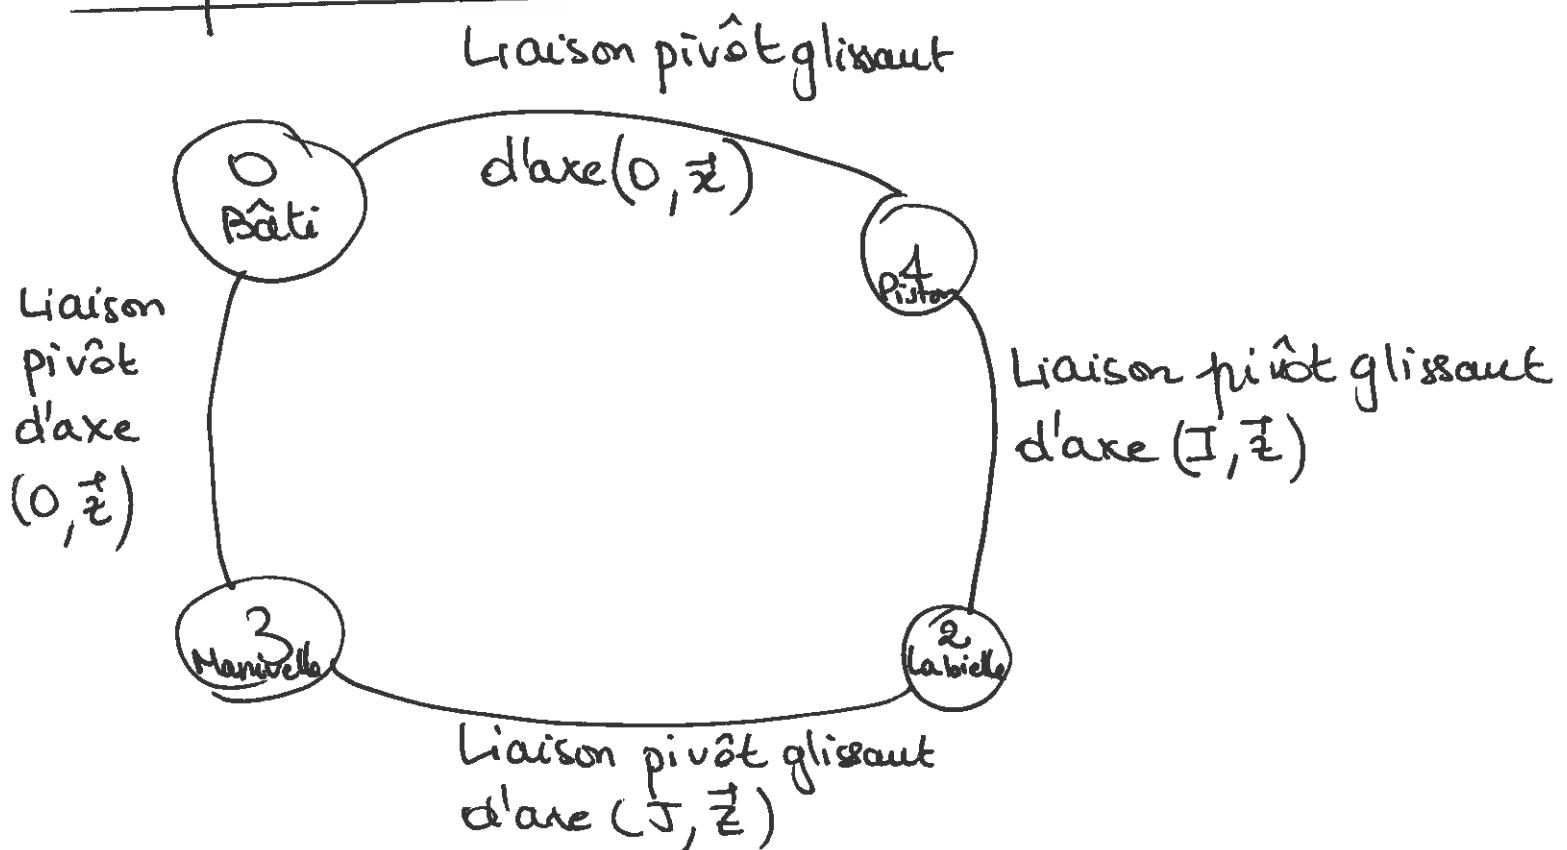 Liaison pivôt glissant
d'axe (O, x⃗)
O
Bâti
1
Piston
Liaison
pivôt
d'axe
(O, z⃗)
Liaison pivôt glissant
d'axe (I, z⃗)
3
Manivelle
2
La bielle
Liaison pivôt glissant
d'axe (J, z⃗)